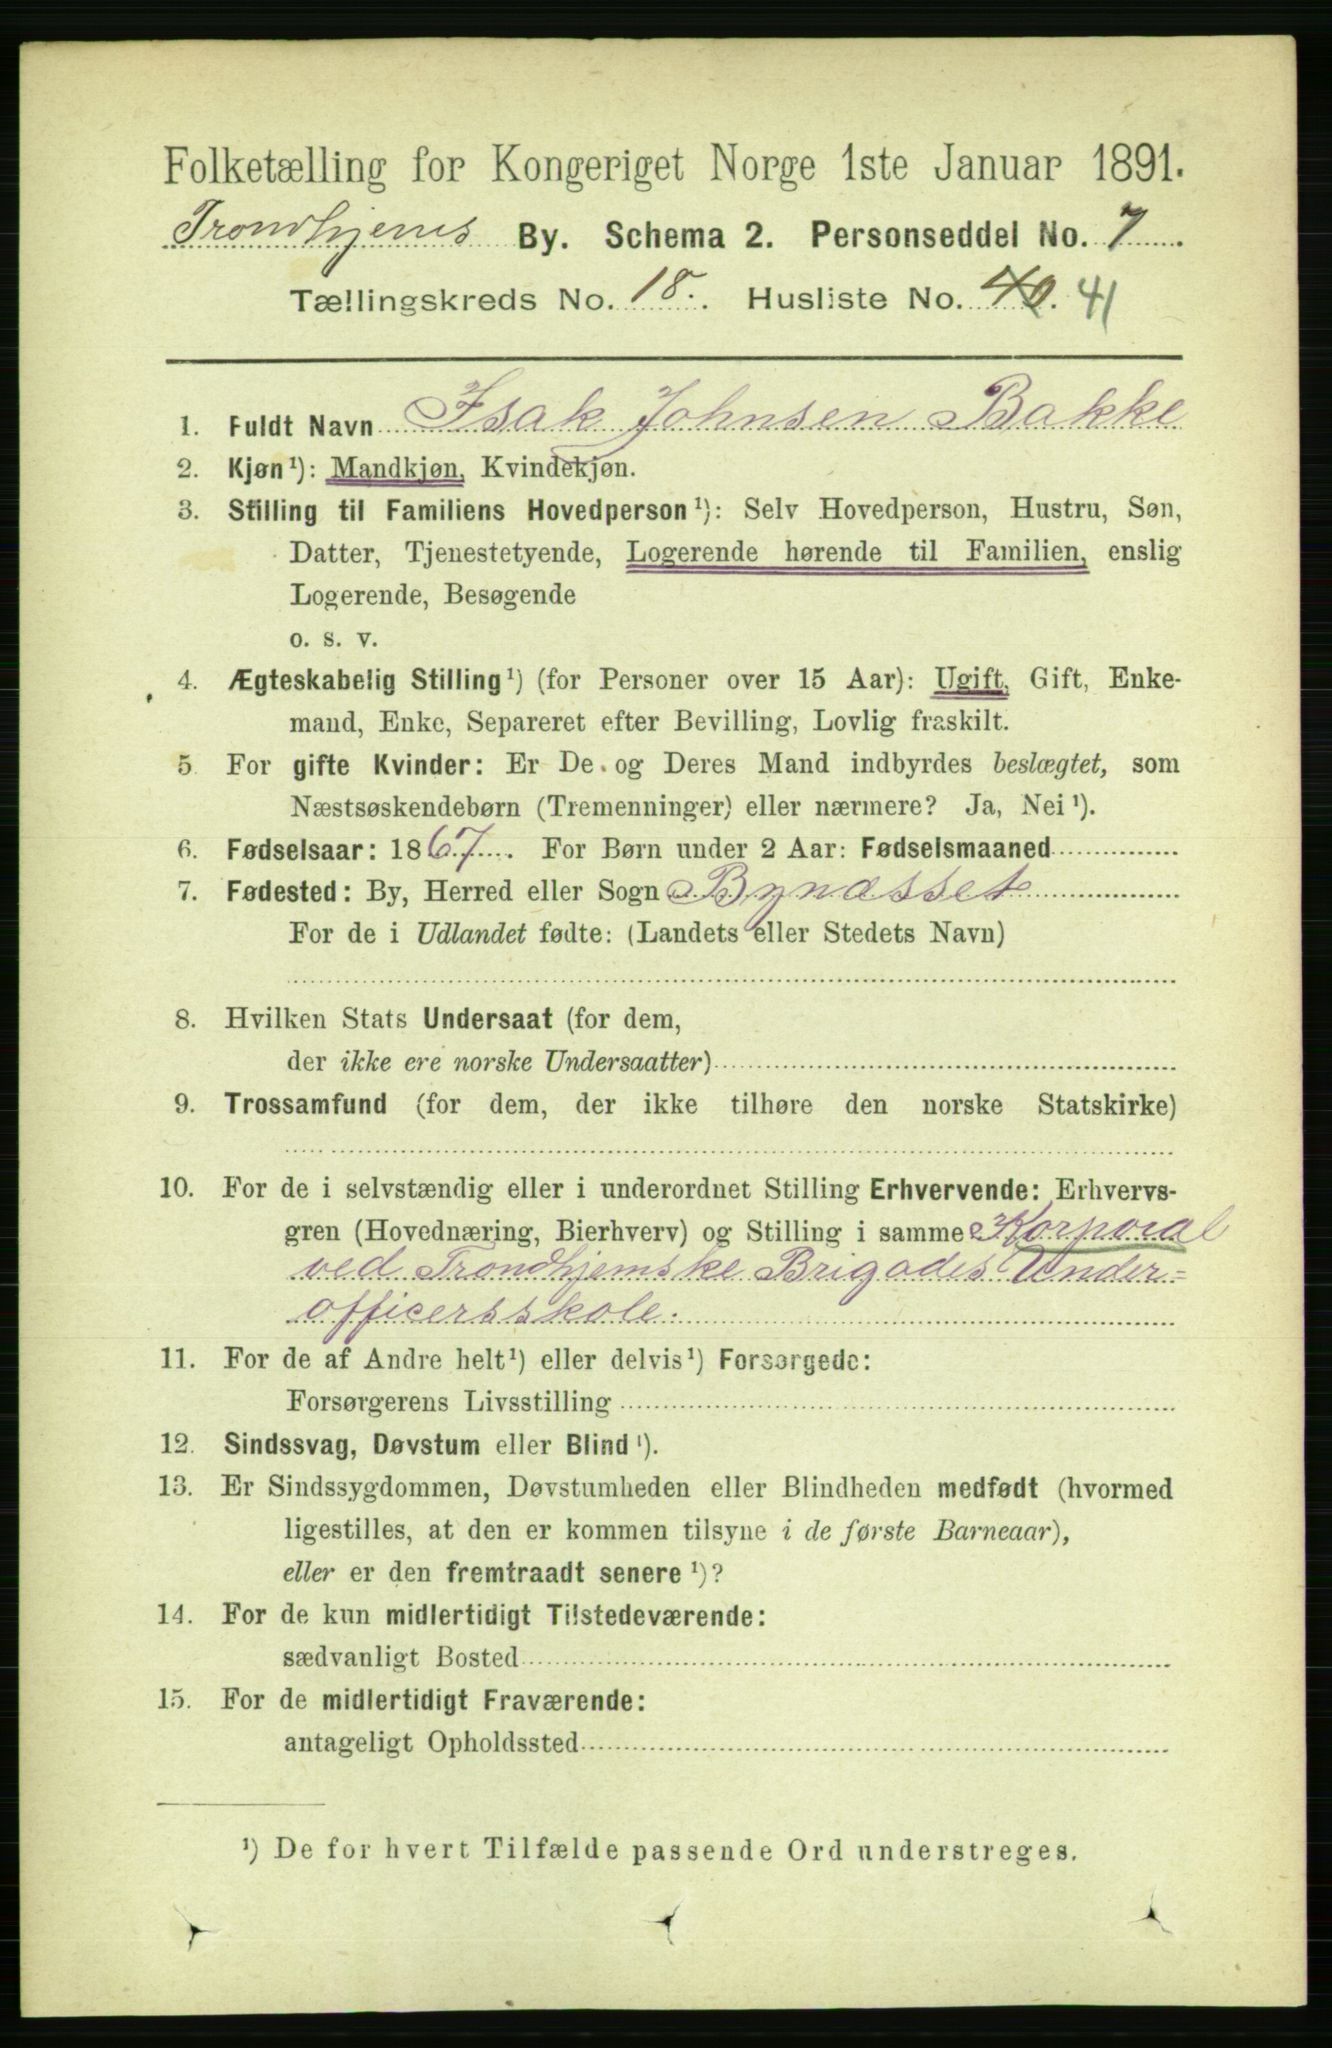 Folketælling for Kongeriget Norge 1ste Januar 1891.
Trondhjems By. Schema 2. Personseddel No. 7
Tællingskreds No. 18. Husliste No. 40. 41
1. Fuldt Navn Isak Johnsen Bakke
2. Kjøn¹): Mandkjøn, Kvindekjøn.
3. Stilling til Familiens Hovedperson¹): Selv Hovedperson, Hustru, Søn,
Datter, Tjenestetyende, Logerende hørende til Familien, enslig
Logerende, Besøgende
o. s. v.
4. Ægteskabelig Stilling¹) (for Personer over 15 Aar): Ugift, Gift, Enke-
mand, Enke, Separeret efter Bevilling, Lovlig fraskilt.
5 For gifte Kvinder: Er De og Deres Mand indbyrdes beslægtet, som
Næstsøskendebørn (Tremenninger) eller nærmere? Ja, Nei¹).
6. Fødselsaar: 1867. For Børn under 2 Aar: Fødselsmaaned
7. Fødested: By, Herred eller Sogn Bynæsset
For de i Udlandet fødte: (Landets eller Stedets Navn)
8. Hvilken Stats Undersaat (for dem,
der ikke ere norske Undersaatter)
9. Trossamfund (for dem, der ikke tilhøre den norske Statskirke)
10. For de i selvstændig eller i underordnet Stilling Erhvervende: Erhvervs-
gren (Hovednæring, Bierhverv) og Stilling i samme Korporal
ved Trondhjemske Brigades Under=
officersskole.
11. For de af Andre helt¹) eller delvis¹) Forsørgede:
Forsørgerens Livsstilling
12. Sindssvag, Døvstum eller Blind¹).
13. Er Sindssygdommen, Døvstumheden eller Blindheden medfødt (hvormed
ligestilles, at den er kommen tilsyne i de første Barneaar),
eller er den fremtraadt senere¹)?
14. For de kun midlertidigt Tilstedeværende:
sædvanligt Bosted
15. For de midlertidigt Fraværende:
antageligt Opholdssted
¹) De for hvert Tilfælde passende Ord understreges.